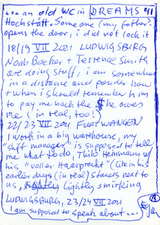 ... an old WC in DREAMS 41
Hochstätt. Some one (my father)
opens the door, i did not lock it
18/19 VII 2001 LUDWIGSBURG
Noah Becker + Terrence Smits
are doing stuff, i am somewhere
in a distance and ponder how
+ when i should remember him
to pay me back the $ he owes
me (in real, too!)
22/23 VII 2001 FURTWANGEN
I work in a big warehouse, my
"shift manager" is supposed to tell
me what to do, Thilo Hehmann w/
his "voller Haarpracht" (like in his
earlier days (in real) stands next to
us, slightly smirking
LUDWIGSBURG, 23/24 VII 2001
i am supposed to speak about ...